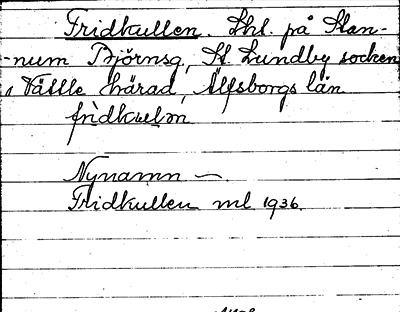 Fridkullen. Lhl. på Stan-
-num Björnsg, St. Lundby socken
Vättle härad, Älfsborgs län
frìdkuelən
Nynamn —.
Fridkullen ml 1936.